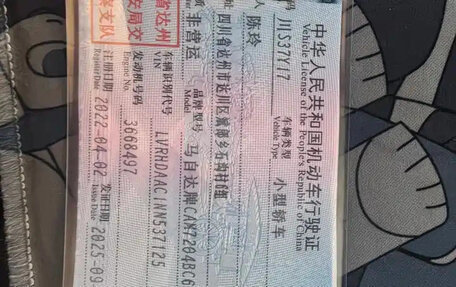 中华人民共和国机动车行驶证
Vehicle License of the People's Republic of China
川S37Y17 车辆类型 小型轿车
Vehicle Type
人 陈玲
四川省达州市达川区
非营运 品牌型号 马自达牌CAM7204BC6
Model
车辆识别代号 LVRHDAAC1NN537125
VIN
发动机号码 3668497
Engine No.
注册日期 2022-04-02 发证日期 2025-09
Register Date Issue Date
省达州
安局交
支队